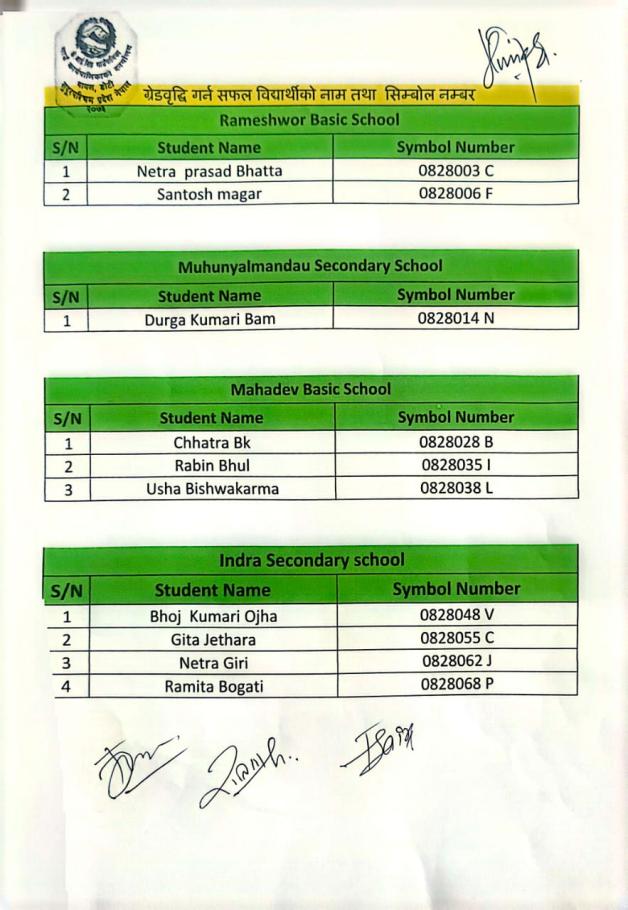 ग्रेडवृद्धि गर्न सफल विद्यार्थीको नाम तथा सिम्बोल नम्बर
Rameshwor Basic School
S/N Student Name Symbol Number
1 Netra prasad Bhatta 0828003 C
2 Santosh magar 0828006 F
Muhunyalmandau Secondary School
S/N Student Name Symbol Number
1 Durga Kumari Bam 0828014 N
Mahadev Basic School
S/N Student Name Symbol Number
1 Chhatra Bk 0828028 B
2 Rabin Bhul 0828035 I
3 Usha Bishwakarma 0828038 L
Indra Secondary school
S/N Student Name Symbol Number
1 Bhoj Kumari Ojha 0828048 V
2 Gita Jethara 0828055 C
3 Netra Giri 0828062 J
4 Ramita Bogati 0828068 P